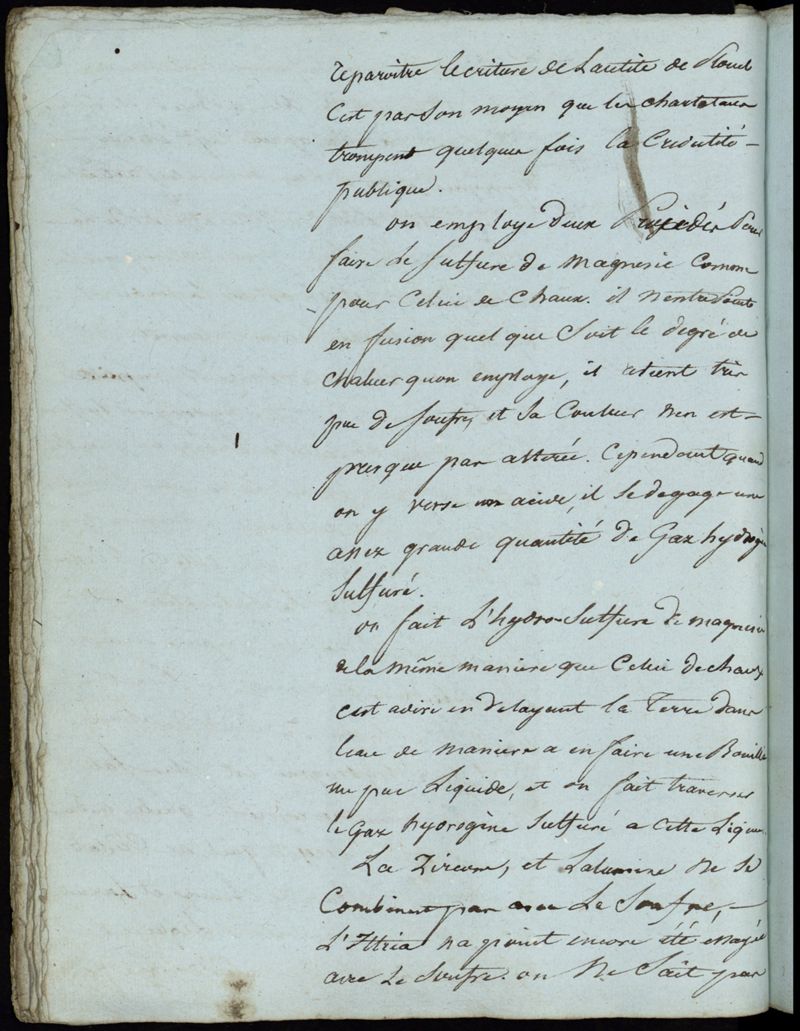 reparoitre lecriture de Lautité de Plomb
C'est par Son moyen que les charlatans
trompent quelque fois la Credulité
publique.
on employe deux Procédés Pour
faire Le Sulfure de Magnesie Comme
pour Celui de Chaux. il n'entre Point
en fusion quel que Soit le degré de
Chaleur qu'on employe, il retient très
peu de Soufre, et Sa Couleur n'en est
presque pas altérée. Cependant quand
on y verse un acide, il Se degage une
assez grande quantité de Gaz hydrogène
Sulfuré.
on fait L'hydro-Sulfure de magnesie
de la même maniere que Celui de chaux
c'est a dire en Delayant la Terre dans
l'eau de maniere a en faire une Bouillie
un peu Liquide, et on fait traverser
le Gaz hydrogène Sulfuré a cette Liqueur
La Zircone, et L'alumine Ne Se
Combinent pas avec Le Soufre,
L'Ittria n'a point encore été essayée
avec Le Soufre. on Ne Sait pas